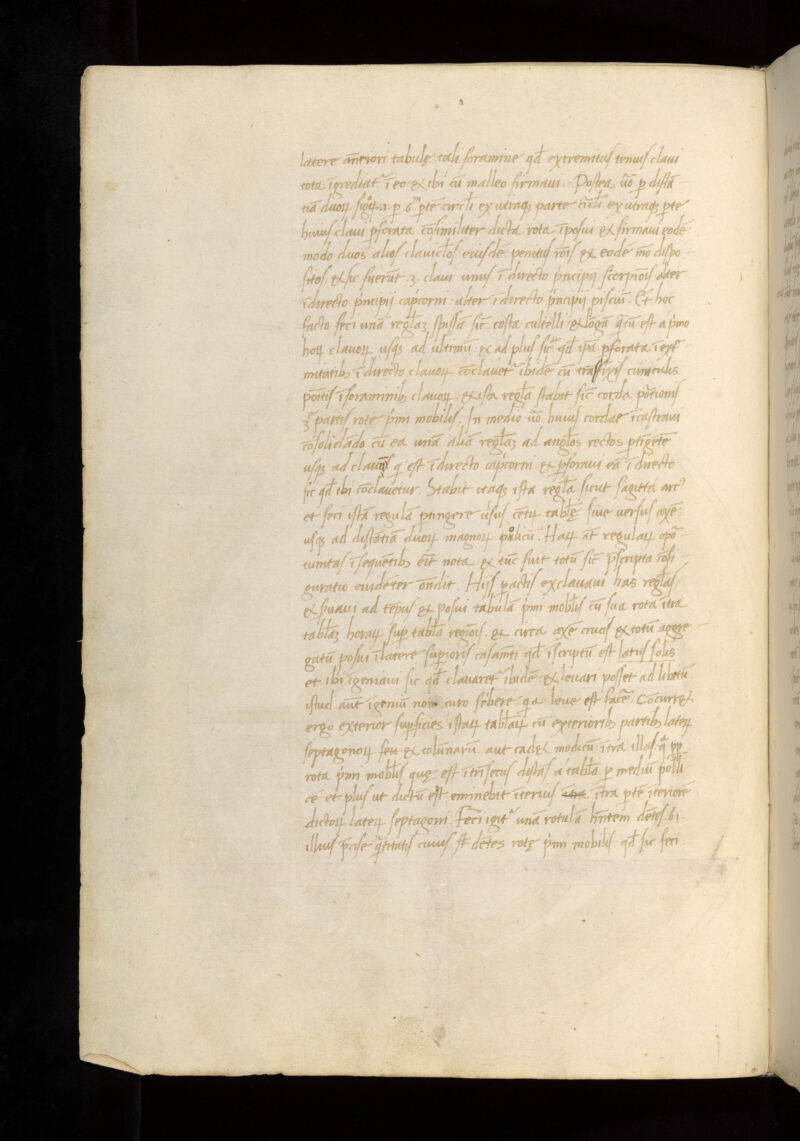 latere añteriori tabulę tali foramine qđ extremitas tenuis claui
tota īgrediat̃ ī eo & ibi cū malleo firmaui. Postea ṽo p distā
tiā duoꝝ sigoꝝ .i. p 6ᵐ pte circli ex utraqꝫ parte ex utraqꝫ pte
huius claui pforata cōsimiliter dicta rota īposui & firmaui eodē
modo duos alios clauiclos eiusdē penitus rōis & eodē mō dispo
sitos & sic fuerūt .3. claui unus ī directo prīcipij scorpiōis alter
īdirecto prīcipij capcorni alter ī directo prīcipij pisciū. Et hoc
facto feci unā reglāꝫ spissā sic̃ costa cultelli & lōgā qtū est a pimo
hoꝝ clauoꝝ usqꝫ ad ultimū. & ad plus sic qđ ipā pforata ī ext
mitatibꝫ ī directo clauoꝝ cōclauet̃ ibidē cū cuniculis
positis ī foraminibꝫ clauoꝝ. & ista regla stabit sic̃ corda portionis
3ᵉ partis rote pmi mobilis. In medio ṽo huius cordae īcastraui
cōsolidādo cū ea unā aliā reglāꝫ ad anglos rectos ptīgētē
usqꝫ ad clauū q est ī directo capcorni & pforaui eā ī directo
sic qđ ibi cōclauetur. Stabit itaqꝫ ista regla sicut sagitta arcꝰ
et feci istā regulā ptingere usus cētꝝ tablę siue uersus axē
usqꝫ ad distātiā duoꝝ magnoꝝ polīcū. Haꝝ āt regulaꝝ opor
tunitas ī sequētibꝫ erit nota & tūc fuit totū sic pscripta cōfi
guratio euidēter ondit. Hijs pactis exclauaui has reglas
& seruaui ad tēpus & posui tabulā pmi moblis cū sua rota itra
tablāꝫ horaꝝ sup tablā regiōis. & circa axē crucis & totū aggre
gatū posui ī latere supioris casamti qđ īscriptū est latus solis
et ibi īgeniaui sic qđ clauaret ibidē & leuari posset ad libitū
istud aut īgeniū non curo scbere qa leue est facē. Cōcurrꝫ
ergo exterior supficies istaꝝ tablaꝝ cū exterioribꝫ partibꝫ lateꝝ
septagonoꝝ seu & colūnarū aut cadꝫ modicū itra illas q pp
rota pmi moblis quę est ītrīsecus distās a tabla p mediū polli
cē et plus ut dictū est eminebit iterius itra ptē iteriorē
dictoꝝ lateꝝ septagoni. Feci igit̃ unā rotulā hntem dētes .61.
illius pcise qtitatis cuius st dētes rotę pmi mobilis. qđ sic feci.